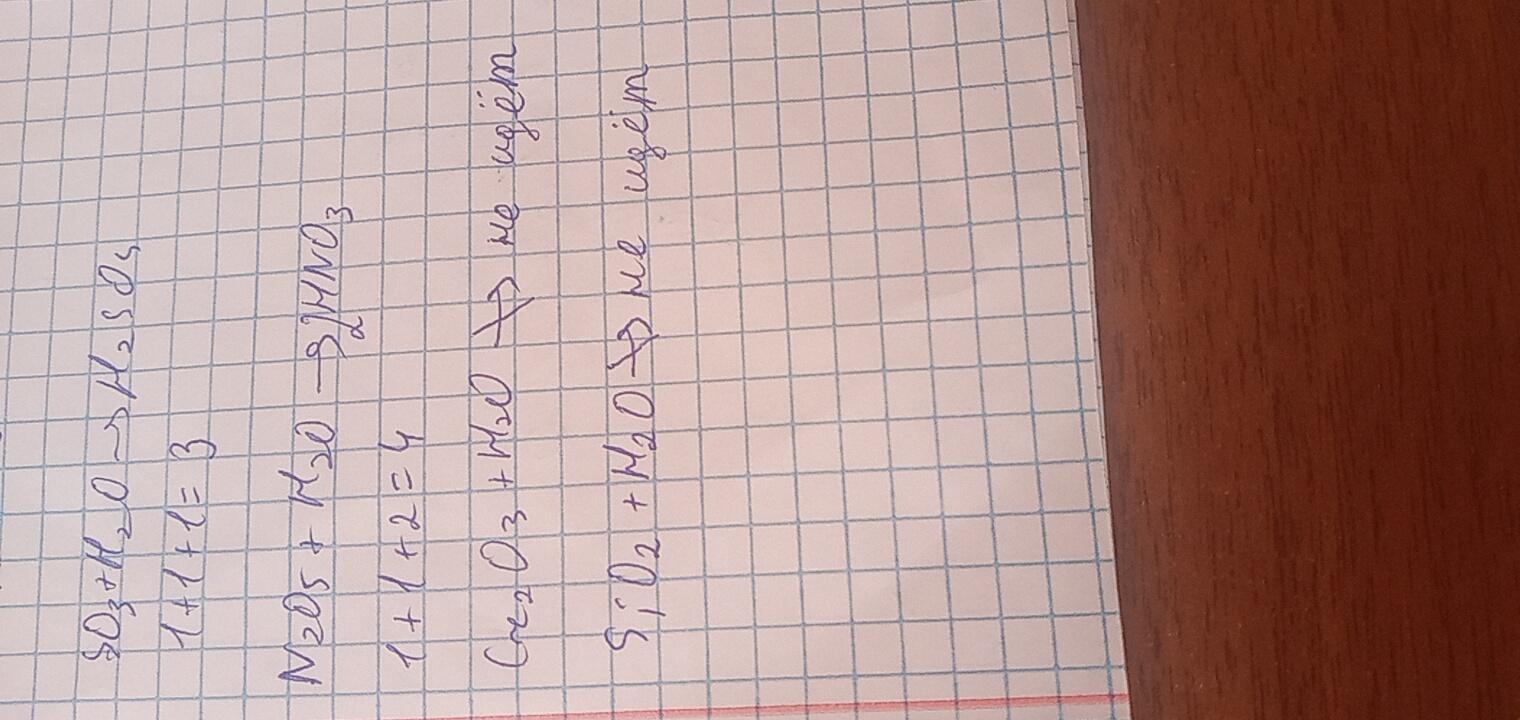 SO₃+H₂O→H₂SO₄
1+1+1=3
N₂O₅+H₂O→2HNO₃
1+1+2=4
Cr₂O₃+H₂O↛не идёт
SiO₂+H₂O↛не идёт